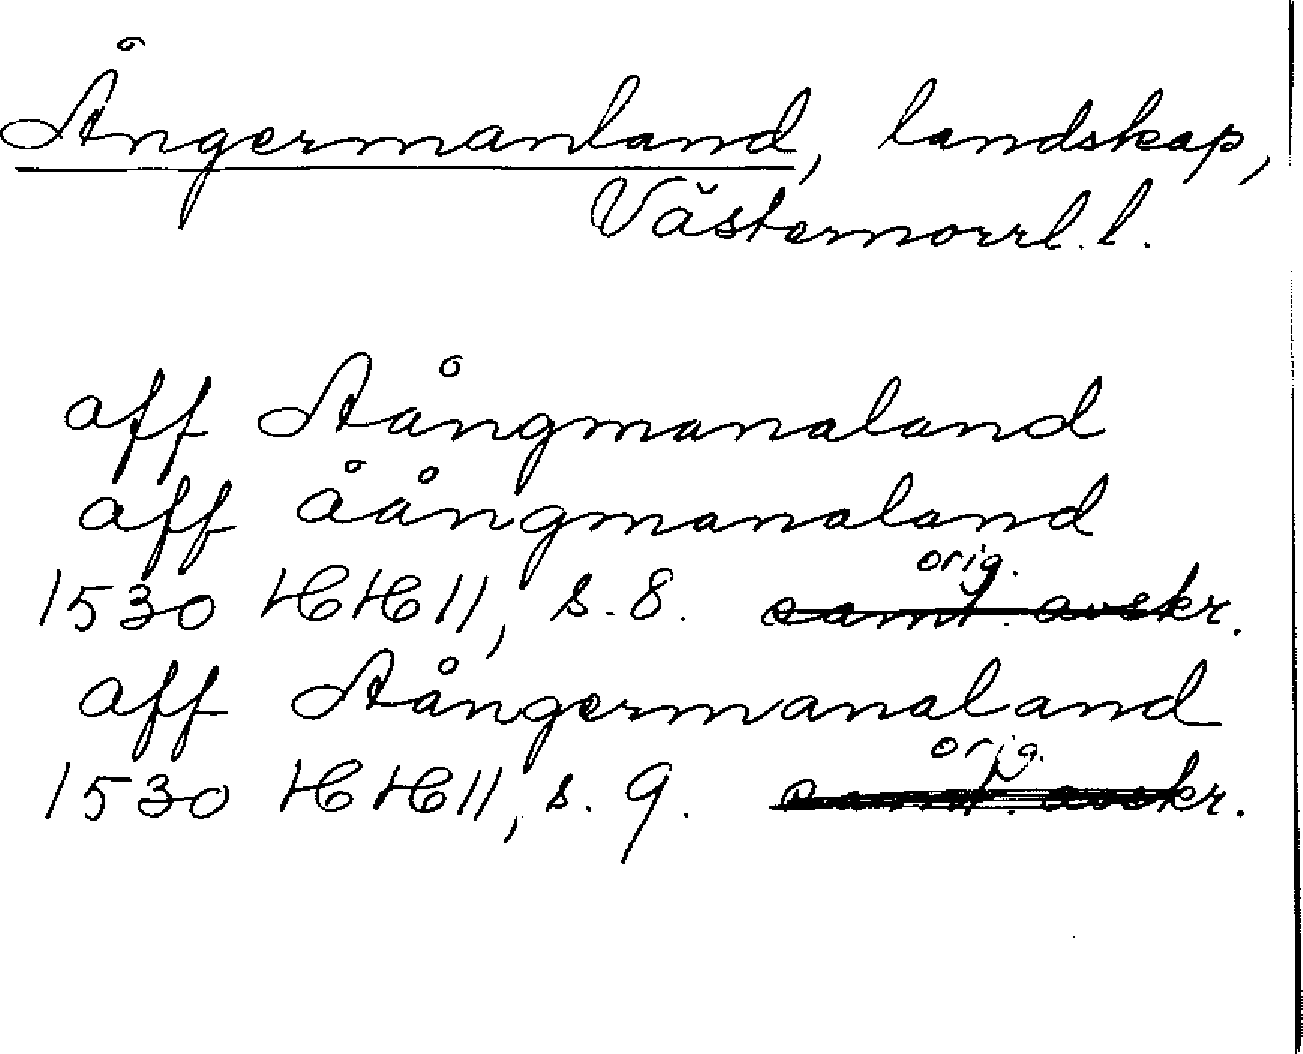 Ångermanland, landskap,
Västernorrl. l.
aff Aångmanaland
aff åångmanaland
orig.
1530 HH II, s. 8. samt. avskr.
aff Aångermanaland
orig.
1530 HH II, s. 9. samt. avskr.